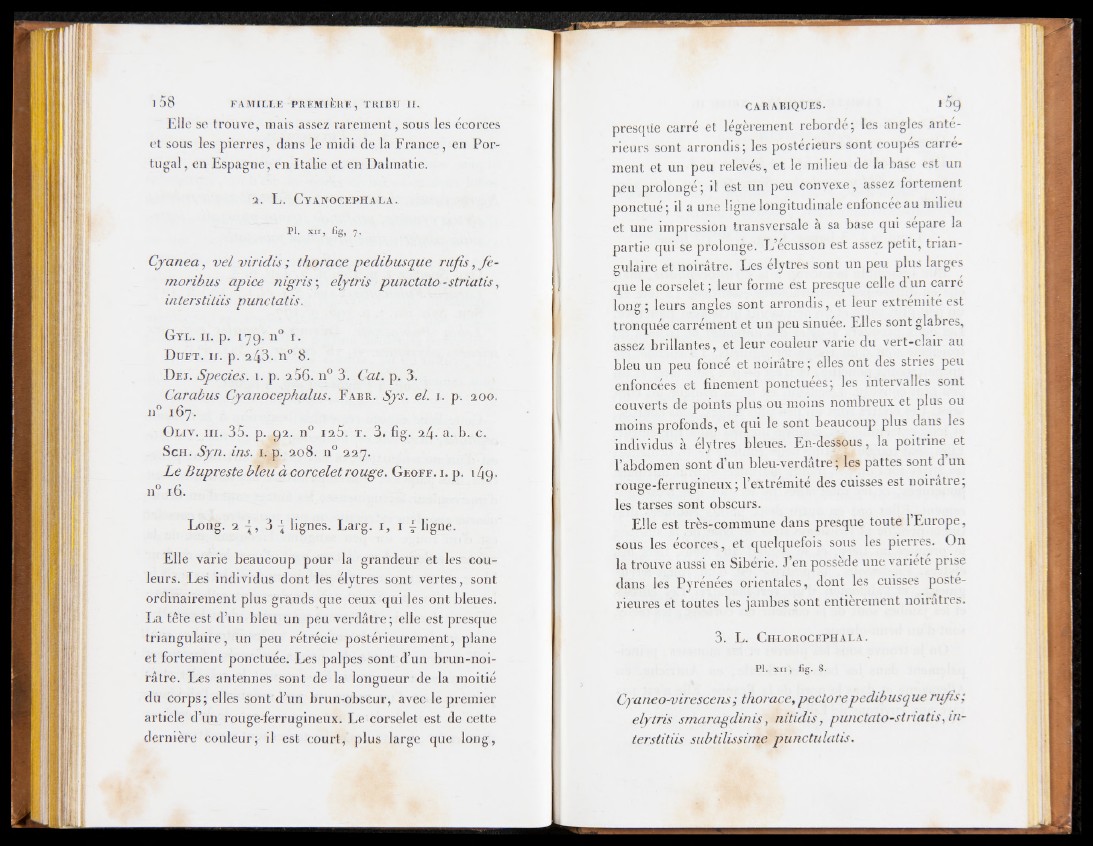 158 FAMILLE PREMIÈRE, TRIBU II.
Elle se trouve, mais assez rarement, sous les écorces
et sous les pierres, dans le midi de la France, en Por-
tugal, en Espagne, en Italie et en Dalmatie.
2. L. CYANOCEPHALA.
Pl. XII, fig, 7.
Cyanea, vel viridis; thorace pedibusque rufis, fe-
moribus apice nigris; elytris punctato-striatis,
interstitiis punctatis.
GYL. II. p. 179. n° 1.
DUFT. II. p. 243. n° 8.
DEJ. Species. I. p. 256. n° 3. Cat. p. 3.
Carabus Cyanocephalus. FABR. Sys. el. I. p. 200.
n° 167.
OLIV. III. 35. p. 92. n° 125. T. 3. fig. 24. a. b. c.
SCH. Syn. ins. I. p. 208. n° 227.
Le Bupreste bleu à corcelet rouge. GEOFF. I. p. 149.
n° 16.
Long. 2 ¼, 3 ¼ lignes. Larg. 1, 1 ½ ligne.
Elle varie beaucoup pour la grandeur et les cou-
leurs. Les individus dont les élytres sont vertes, sont
ordinairement plus grands que ceux qui les ont bleues.
La tête est d'un bleu un peu verdâtre; elle est presque
triangulaire, un peu rétrécie postérieurement, plane
et fortement ponctuée. Les palpes sont d'un brun-noi-
râtre. Les antennes sont de la longueur de la moitié
du corps; elles sont d'un brun-obscur, avec le premier
article d'un rouge-ferrugineux. Le corselet est de cette
dernière couleur; il est court, plus large que long,
CARABIQUES. 159
presque carré et légèrement rebordé; les angles anté-
rieurs sont arrondis; les postérieurs sont coupés carré-
ment et un peu relevés, et le milieu de la base est un
peu prolongé; il est un peu convexe, assez fortement
ponctué; il a une ligne longitudinale enfoncée au milieu
et une impression transversale à sa base qui sépare la
partie qui se prolonge. L'écusson est assez petit, trian-
gulaire et noirâtre. Les élytres sont un peu plus larges
que le corselet; leur forme est presque celle d'un carré
long; leurs angles sont arrondis, et leur extrémité est
tronquée carrément et un peu sinuée. Elles sont glabres,
assez brillantes, et leur couleur varie du vert-clair au
bleu un peu foncé et noirâtre; elles ont des stries peu
enfoncées et finement ponctuées; les intervalles sont
couverts de points plus ou moins nombreux et plus ou
moins profonds, et qui le sont beaucoup plus dans les
individus à élytres bleues. En-dessous, la poitrine et
l'abdomen sont d'un bleu-verdâtre; les pattes sont d'un
rouge-ferrugineux; l'extrémité des cuisses est noirâtre;
les tarses sont obscurs.
Elle est très-commune dans presque toute l'Europe,
sous les écorces, et quelquefois sous les pierres. On
la trouve aussi en Sibérie. J'en possède une variété prise
dans les Pyrénées orientales, dont les cuisses posté-
rieures et toutes les jambes sont entièrement noirâtres.
3. L. CHLOROCEPHALA.
Pl. XII, fig. 8.
Cyaneo-virescens; thorace, pectore pedibusque rufis;
elytris smaragdinis, nitidis, punctato-striatis, in-
terstitiis subtilissime punctulatis.